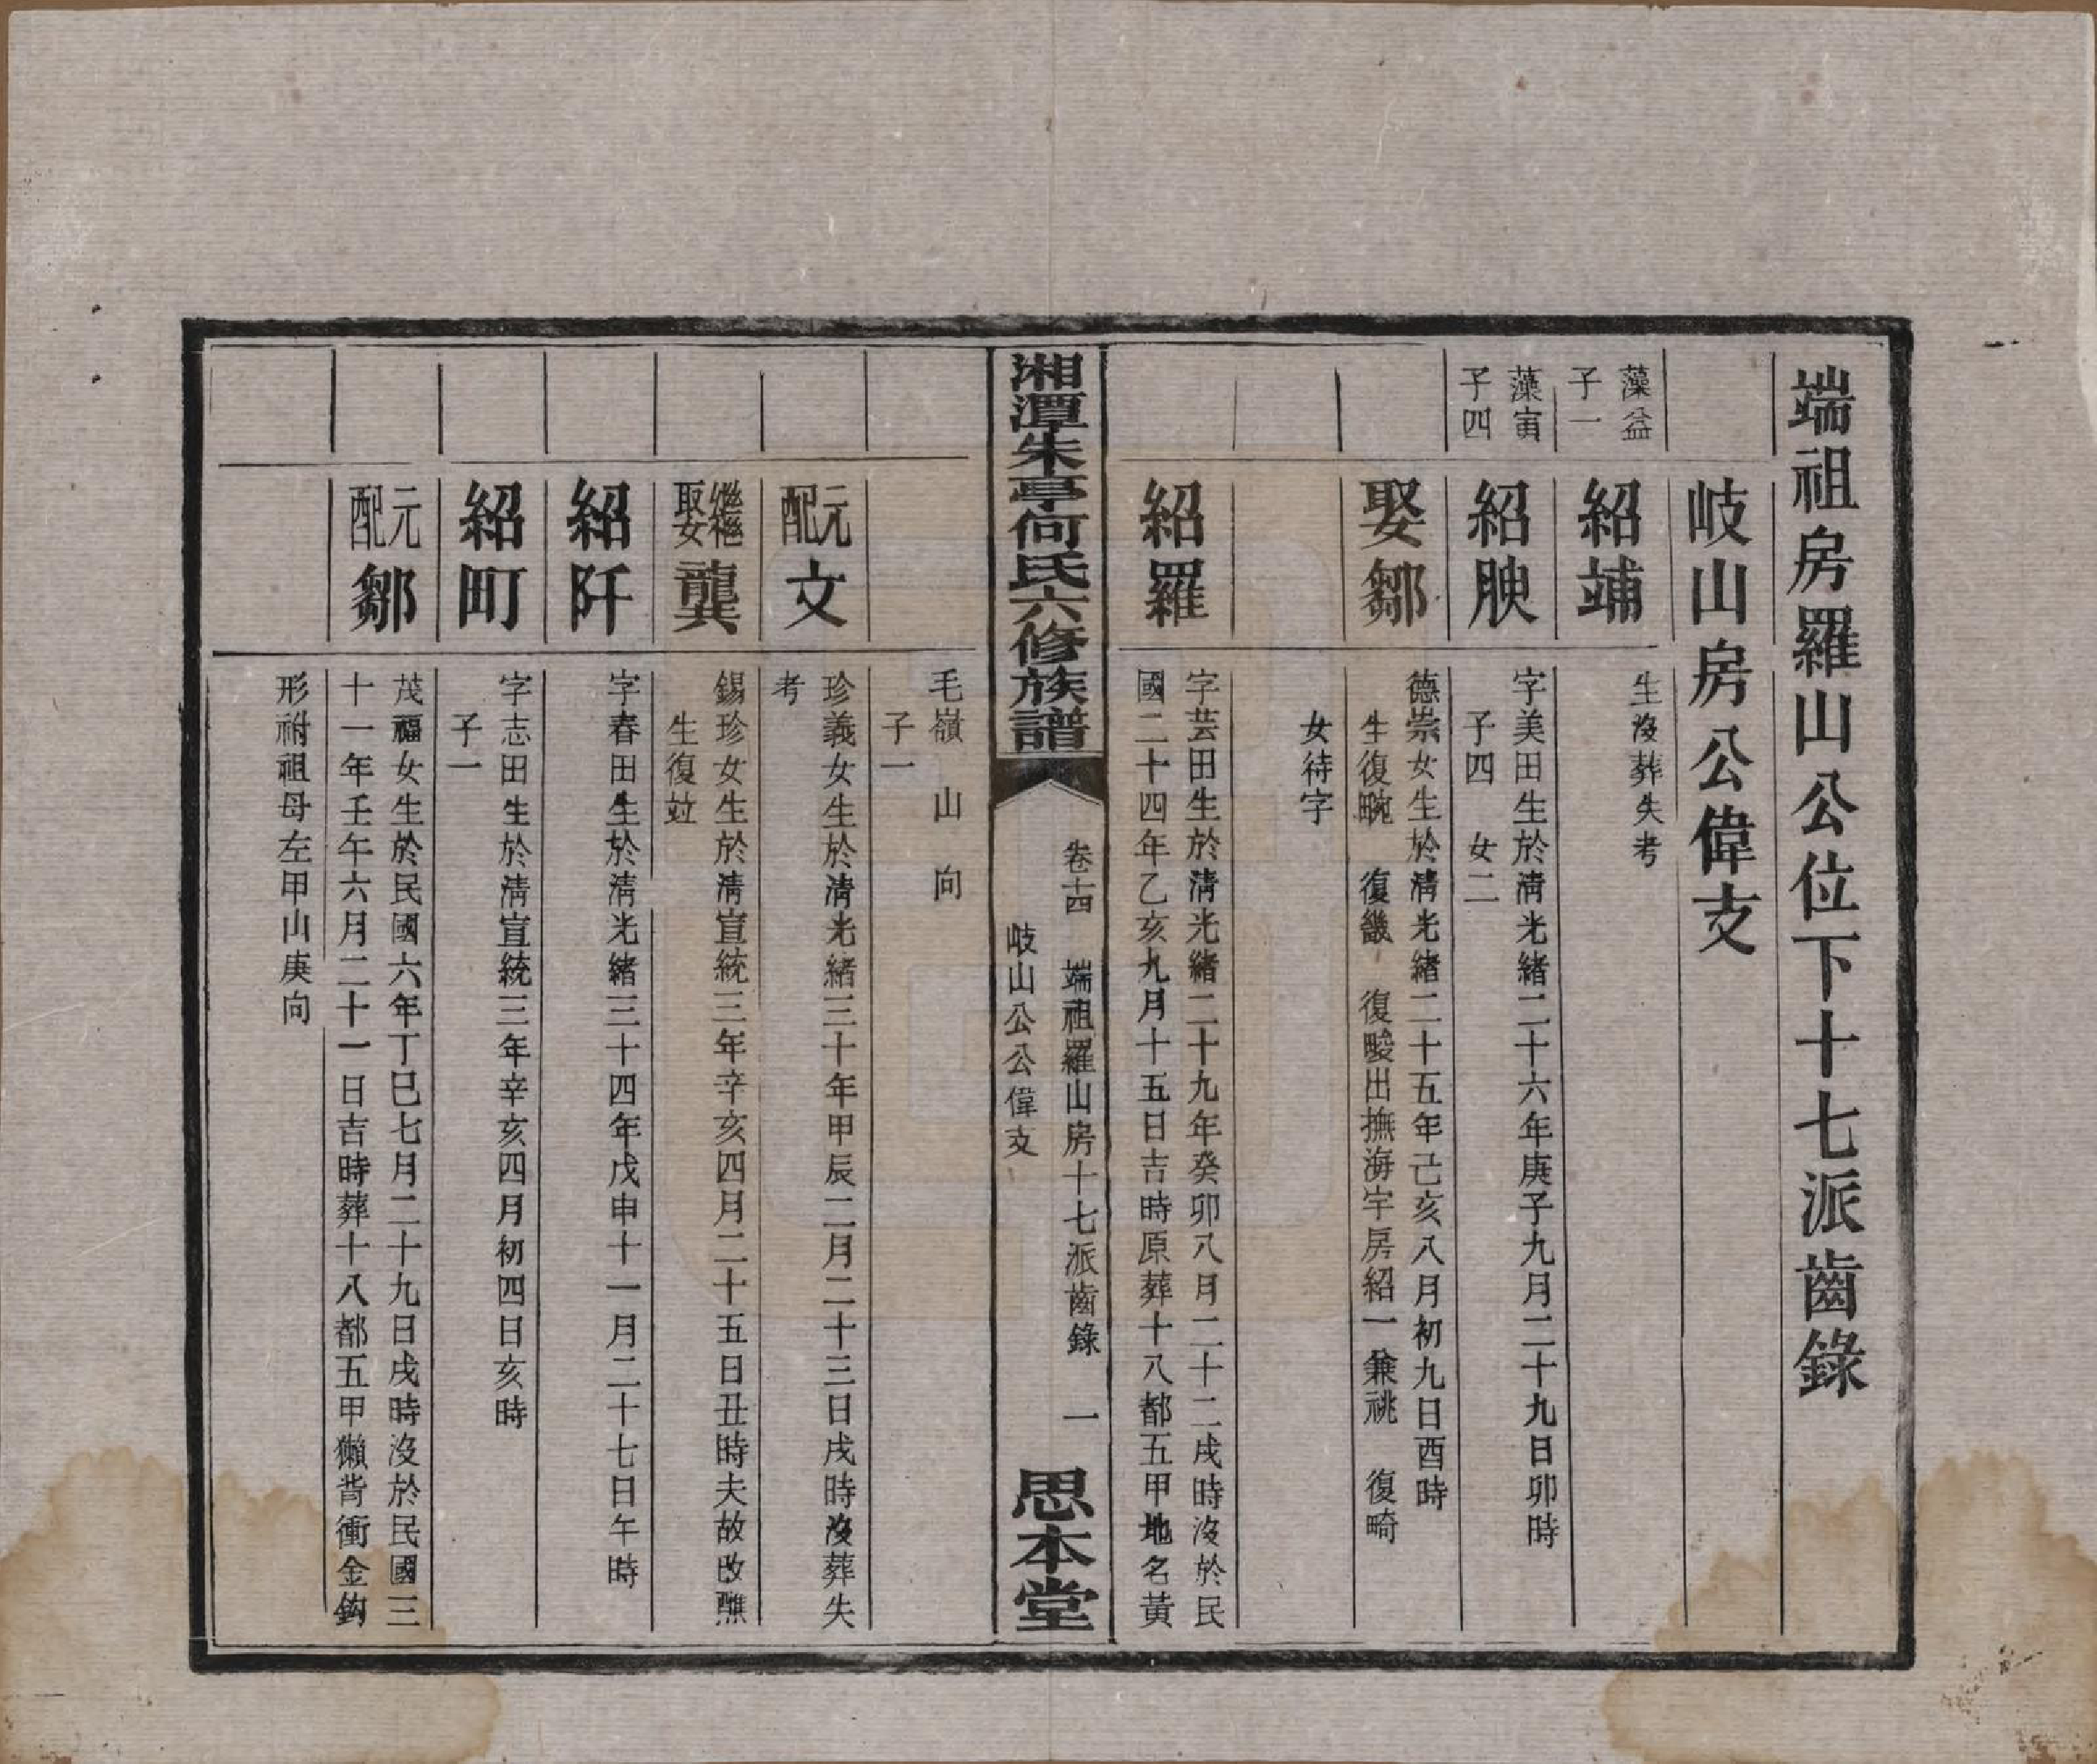 端祖房羅山公位下十七派齒錄
岐山房公偉支
藻益
子一
紹埔
生沒葬失考
藻寅
子四
紹腴
字美田生於淸光緒二十六年庚子九月二十九日卯時
子四　女二
娶鄒
德崇女生於淸光緒二十五年己亥八月初九日酉時
生復畹　復畿　復畯出撫海宇房紹一兼祧　復畸
女待字
紹羅
字芸田生於淸光緒二十九年癸卯八月二十二戌時沒於民
國二十四年乙亥九月十五日吉時原葬十八都五甲地名黃
湘潭朱亭何氏六修族譜
卷十四　端祖羅山房十七派齒錄　一
岐山公公偉支
思本堂
毛嶺　山　向
子一
元配
文
珍義女生於淸光緒三十年甲辰二月二十三日戌時沒葬失
考
繼娶
龔
錫珍女生於淸宣統三年辛亥四月二十五日丑時夫故改醮
生復竝
紹阡
字春田生於淸光緒三十四年戊申十一月二十七日午時
紹町
字志田生於淸宣統三年辛亥四月初四日亥時
子一
元配
鄒
茂福女生於民國六年丁巳七月二十九日戌時沒於民國三
十一年壬午六月二十一日吉時葬十八都五甲獺背衝金鈎
形祔祖母左甲山庚向